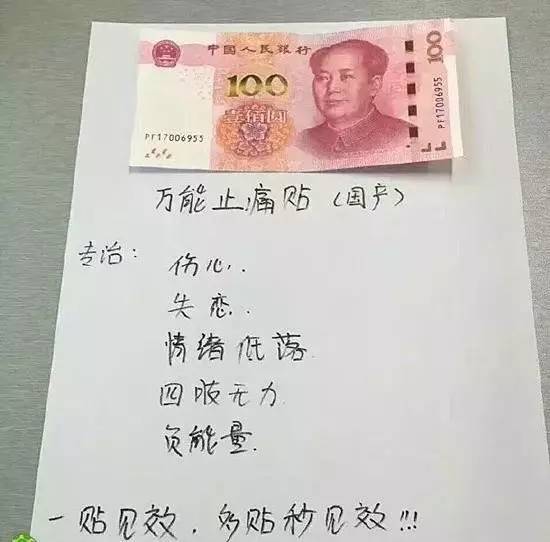 中国人民银行
100
100
壹佰圆
PF17006955
PF17006955
万能止痛贴（国产）
专治：
伤心.
失恋.
情绪低落.
四吱无力
负能量.
一贴见效，多贴秒见效!!!